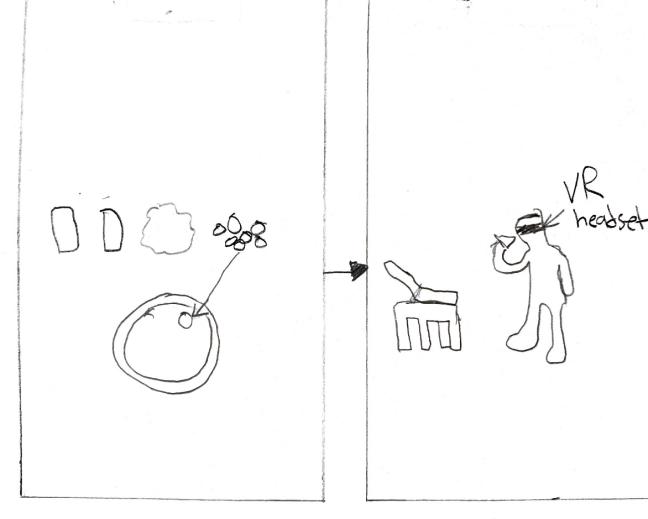 VR
headset